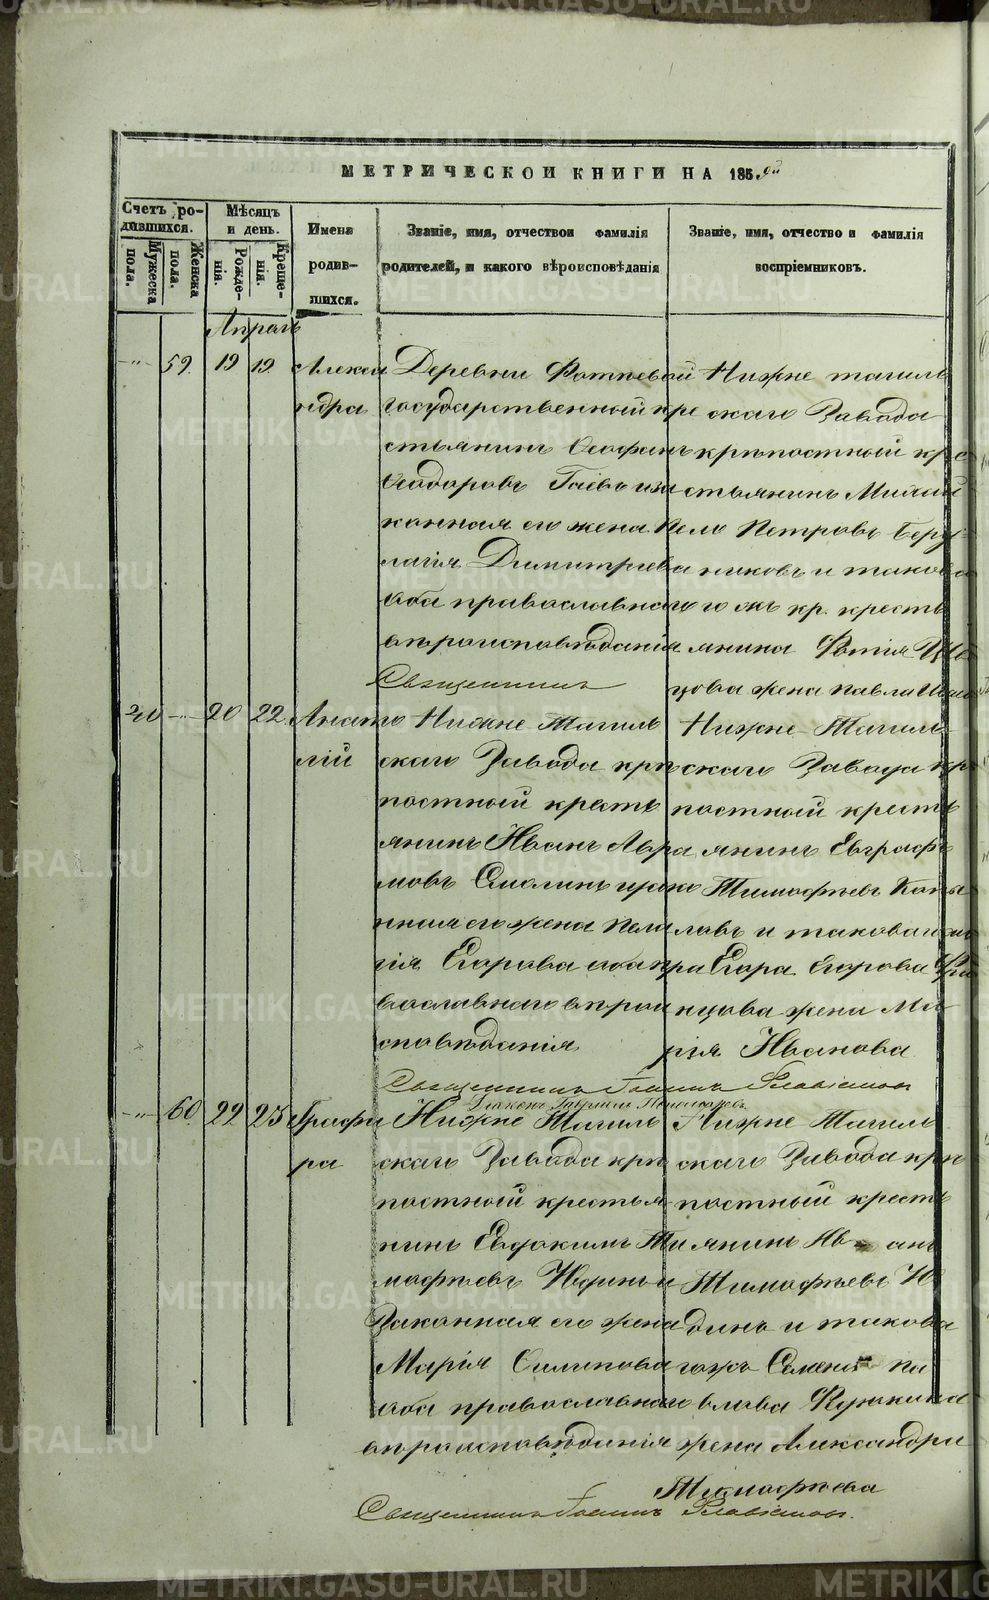 METRIKI.GASO-URAL.RU
МЕТРИЧЕСКОЙ КНИГИ НА 185 ой
Счетъ ро-
дившихся.
Мужеска
пола.
Женска
пола.
Мѣсяцъ
и день.
Рожде-
нія.
Креще-
нія.
Имена
родив-
шихся.
Званіе, имя, отчество и фамилія
родителей, и какого вѣроисповѣданія
Званіе, имя, отчество и фамилія
воспріемниковъ.
Апрель
59 19 19 Алекса
ндра
Деревни Фотеевой
государственной кре
стьянинъ Ѳеофанъ
Ѳеодоровъ за
конная его жена Пе
лагія Димитріева
оба православнаго
вѣроисповѣданія
Нижне тагиль
скаго Завода
крѣпостной кре
стьянинъ
Петровъ
никовъ и таково
го жъ кр. кресть
янина Фотія
цова жена Павла
Священникъ
20 22 Анато
лій
Нижне-Тагиль
скаго Завода крѣ
постной кресть
янинъ Иванъ Авра
мовъ Смолинъ и зако
нная его жена Пела
гія Егорова оба пра
вославнаго вѣрои
сповѣданія
Нижне-Тагиль
скаго Завода крѣ
постной кресть
янинъ Евграфъ
Тимофѣевъ Копы
ловъ и таковаго жъ
Егора Егорова
цова жена Ма
рія Иванова
Священникъ Іоаннъ Флавіановъ
Діаконъ Гавріилъ Пономаревъ
60 22 25 Глафи
ра
Нижне Тагиль
скаго Завода крѣ
постной крестья
нинъ Евдокимъ Ти
мофѣевъ Юдинъ и
Законная его жена
Марія Силипова
оба православнаго
вѣроисповѣданія
Нижне Тагиль
скаго Завода крѣ
постный кресть
янинъ Иванъ
Тимофѣевъ Ю
динъ и таково
гожъ Семена Па
влова
жена Александра
Тимофѣева
Священникъ Іоаннъ Флавіановъ.